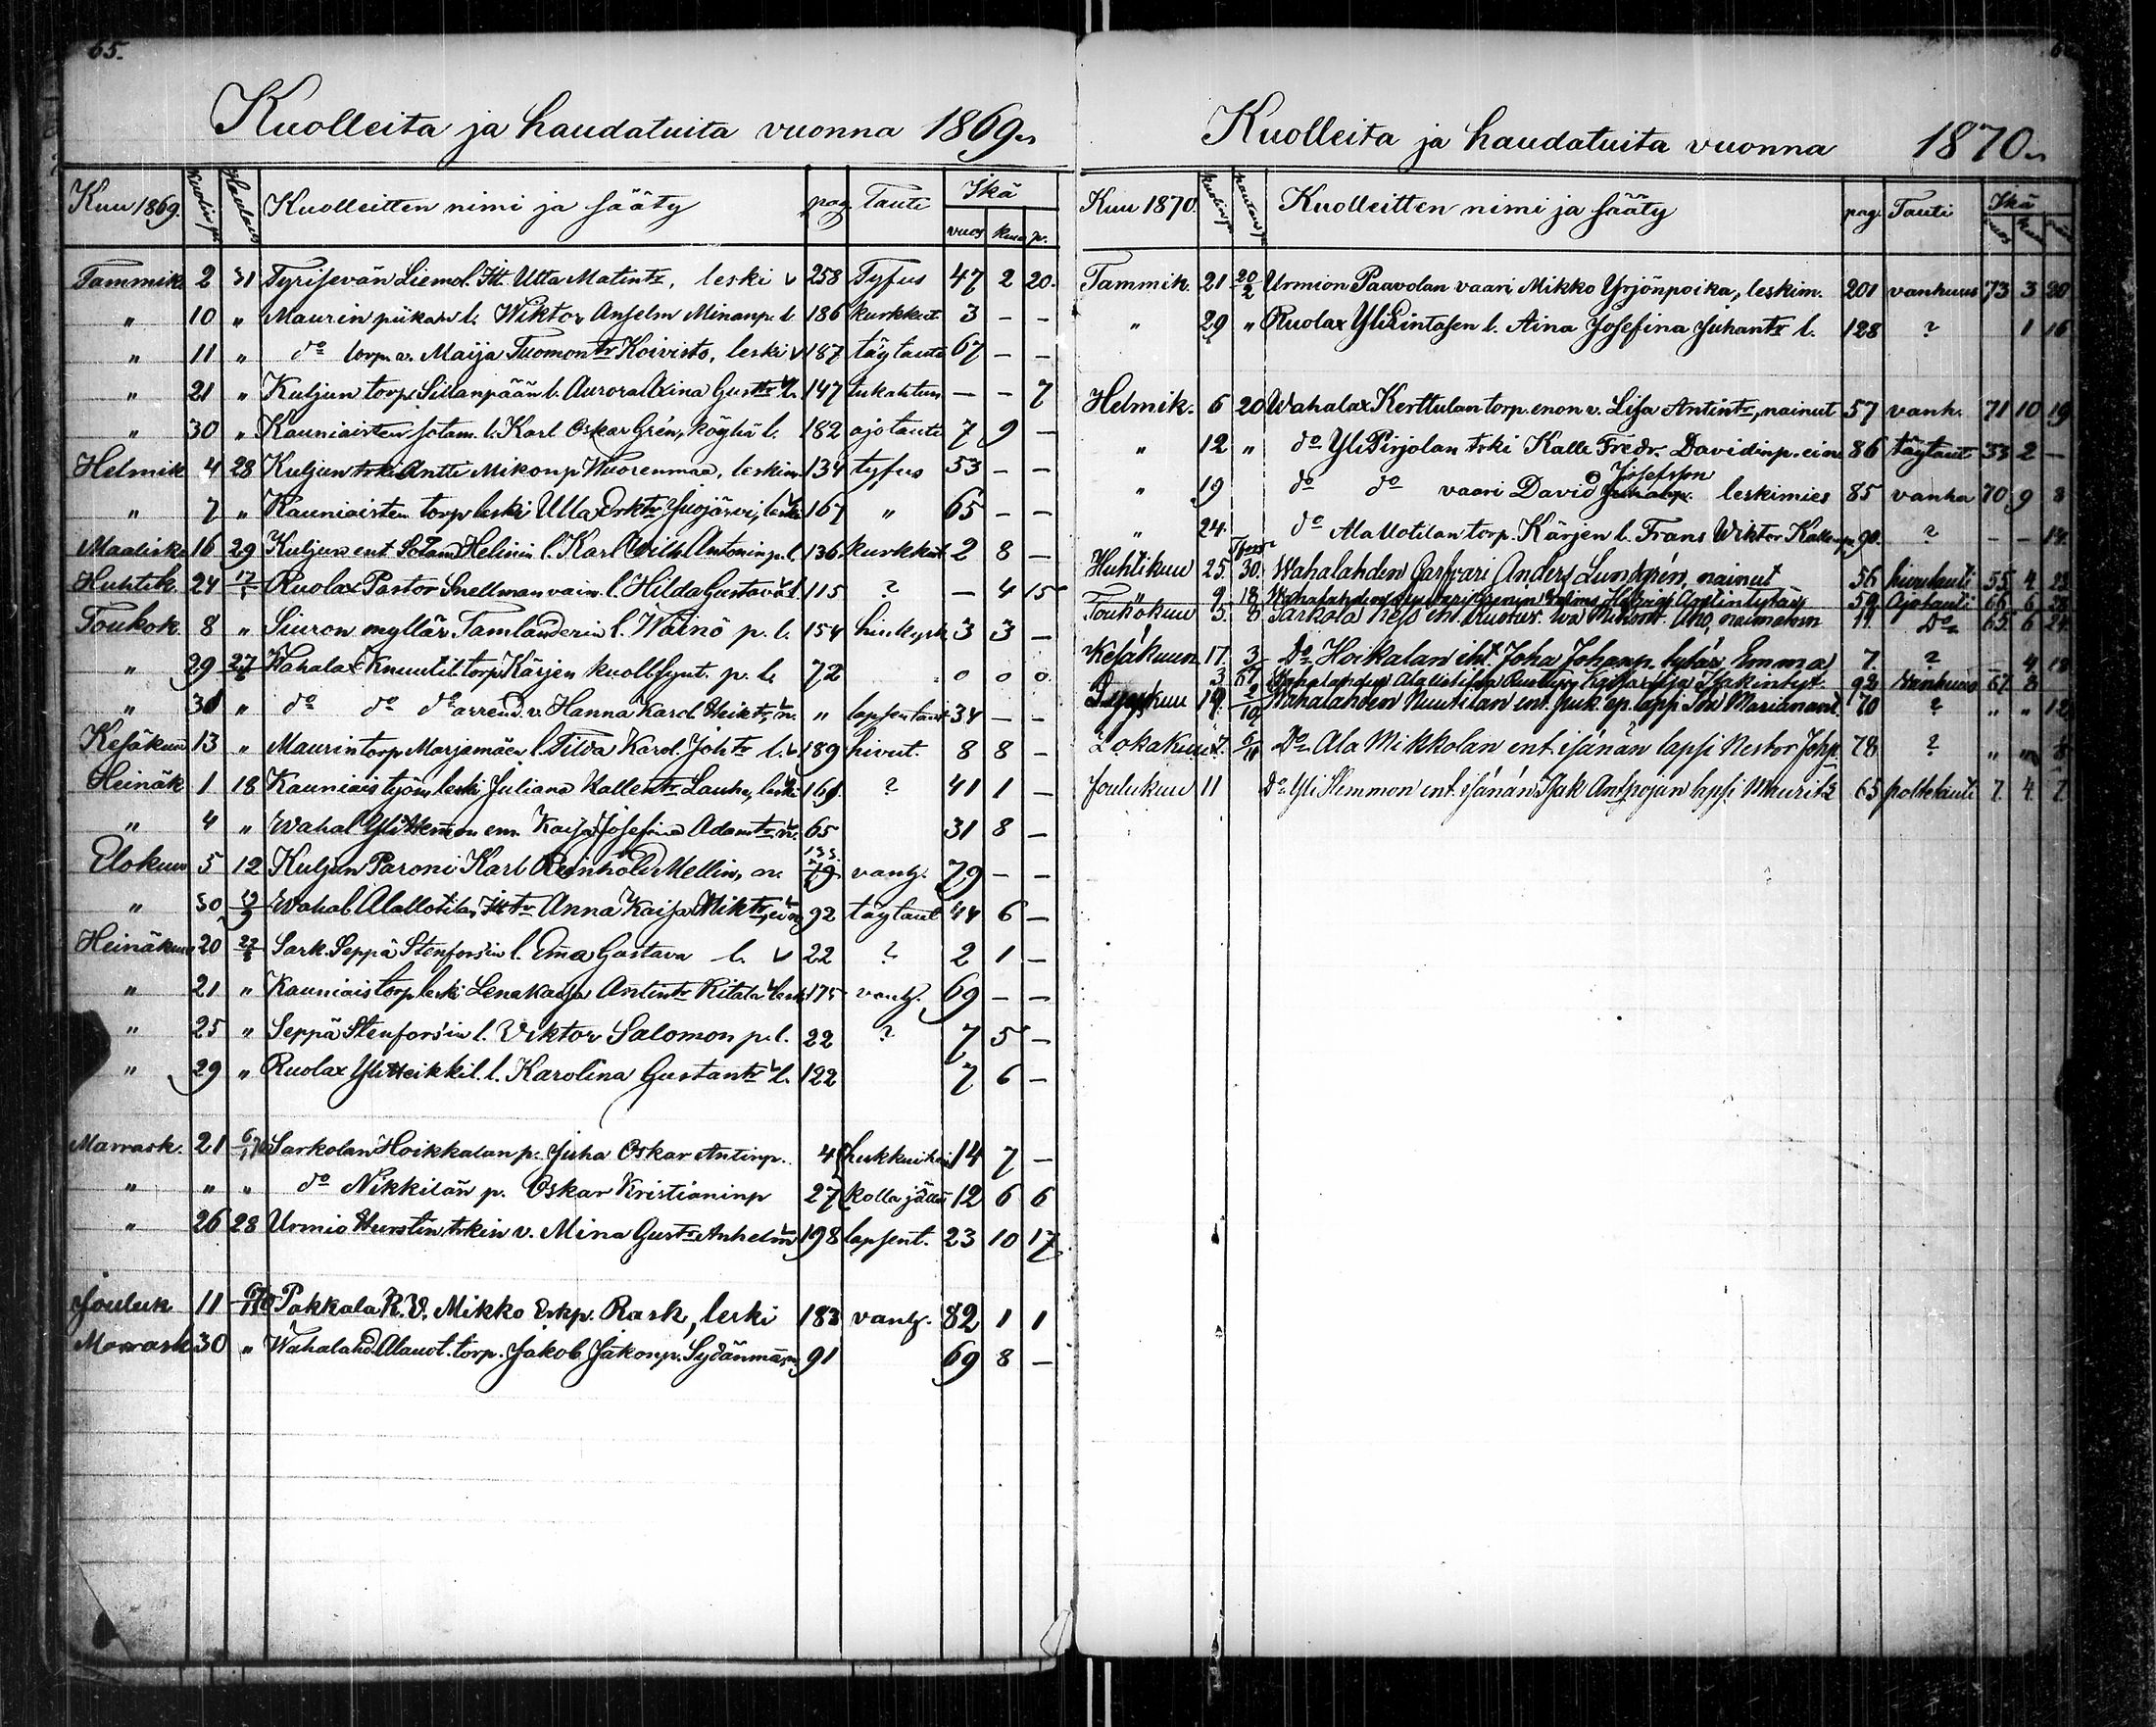 65.
Kuolleita ja haudatuita vuonna 1869.
Kuu 1869. Kuolinp. Hautaus Kuolleitten nimi ja sääty pag Tauti Ikä
vuos kuu p.
Tammik. 2 31 Tyrisevän Siemol. Itt. Ulla Matintr, leski 258 Tyfus 47 2 20.
" 10 " Maurin piikan l. Wiktor Anselm Minanp. l. 186 kurkkut. 3 – –
" 11 " do torp. v. Maija Tuomontr Koivisto, leski 187 täytauti 67 – –
" 21 " Kuljun torp. Sillanpään l. Aurora Axina Gusttr l. 147 tukahtum – – 7
" 30 " Kauniaisten sotam. l. Karl Oskar Grén, köyhä l. 182 ajotauti 7 9 –
Helmik. 4 28 Kuljun trki Antti Mikonp Wuorenmaa, leskim. 134 tyfus 53 – –
" 7 " Kauniaisten torp leski Ulla Erktr Yliojärvi, leski 167 " 65 – –
Maalisk. 16 29 Kuljun ent Sotam Helinin l. Karl Wilh Antoninp. l. 136 kurkkut 2 8 –
Huhtik. 24 17 Ruolax Pastor Snellman vain. l. Hilda Gustava l. 115 ? – 4 15
Toukok. 8 " Siuron myllär Tamlanderin l. Wäinö p. l. 154 hinkuysk 3 3 –
" 29 27/6 Wahalax Knuutil torp Kärjen kuoll synt. p. l. 72 0 0 0
" 31 " do do do arrend. v. Hanna Karol. Heiktr, n. " lapsentaut 34 – –
Kesäkuu 13 " Maurin torp Marjamäen l. Tilda Karol. Johtr l. 189 hivut. 8 8 –
Heinäk 1 18 Kauniais työm leski Juliana Kallentr Lauha, leski 169 ? 41 1 –
" 4 " Wahal YliHemmon em. Kaisa Josefina Adamtr, n. 65 31 8 –
Elokuu 5 12 Kuljun Paroni Karl Reinhold Mellin, n. 133 79 vanh. 79 – –
" 30 19/9 Wahal. Alallotilan Ittr Anna Kaisa Miktr, ein 92 täytaut 44 6 –
Heinäkuu 20 22/8 Sark. Seppä Stenfors'in l. Ema Gustava l. 22 ? 2 1 –
" 21 " Kauniais torp leski Lenakaisa Antintr Ritala lesk 175 vanh. 69 – –
" 25 " Seppä Stenfors'in l. Viktor Salomon p. l. 22 ? 7 5 –
" 29 " Ruolax YliHeikkil. l. Karolina Gustantr l. 122 7 6 –
Marrask. 21 6/1 70 Sarkolan Hoikkalan p. Juha Oskar Antinp. 4 14 7 –
" " " do Nikkilän p. Oskar Kristianinp 27 12 6 6
" 26 28 Urmio Hurstin trkin v. Mina Gusttr Anhelm 198 lapsent. 23 10 17
Jouluk 11 Pakkala R.V. Mikko Erkp. Rask, leski 183 vanh. 82 1 1
Marrask 30 " Wahalahd. Alauot. torp. Jakob Jakonp. Sydänmä, n. 91 69 8 –
Kuolleita ja haudatuita vuonna 1870.
Kuu 1870. Kuolinp. Hautausp. Kuolleitten nimi ja sääty pag. Tauti Ikä
vuos kuu
Tammik. 21 20/2 Urmion Paavolan vaari Mikko Yrjönpoika, leskim. 201 vanhuus 73 3 20
" 29 " Ruolax YliLintasen l. Aina Josefina Juhantr l. 128 ? 1 16
Helmik. 6 20 Wahalax Kerttulan torp. enon v. Lisa Antintr, nainut 57 vanh. 71 10 19
" 12 " do YliPirjolan trki Kalle Fredr. Davidinp. ein 86 täytaut 33 2 –
Josefsson
" 19 do do vaari David leskimies 85 vanha 70 9 8
" 24 do Alallotilan torp. Kärjen l. Frans Wiktor Kallenp. 90. ? – – 14
Huhtikuu 25. 30. Wahalahden Anders Lundgrén, nainut 56 hivutauti 55 4 23
" 9. 18. Wahalahden Antintytär 59 Ajotauti 66 6
Toukokuu 5. 8 Sarkola aho, naimaton 11 Do 65. 6 24
Kesäkuun 17. 3 Do Hoikalan Joha Johanp. tytär Emma 7. ? – 4 18
3 Isakintyt. 92 Vanhuus 67 8
Syyskuu 19. 2/10 Wahalahden Nuutilan ent. lapsi 70 ? " " 12
Lokakuu 7. 6/11 Do Ala Mikkolan ent. isännän lapsi Nestor Johp. 78 ? " " 8
Joulukuu 11 Do Yli Hemmon ent. isännän Isak Antpojan lapsi Mauritz 65 polttetauti 7. 4. 7.